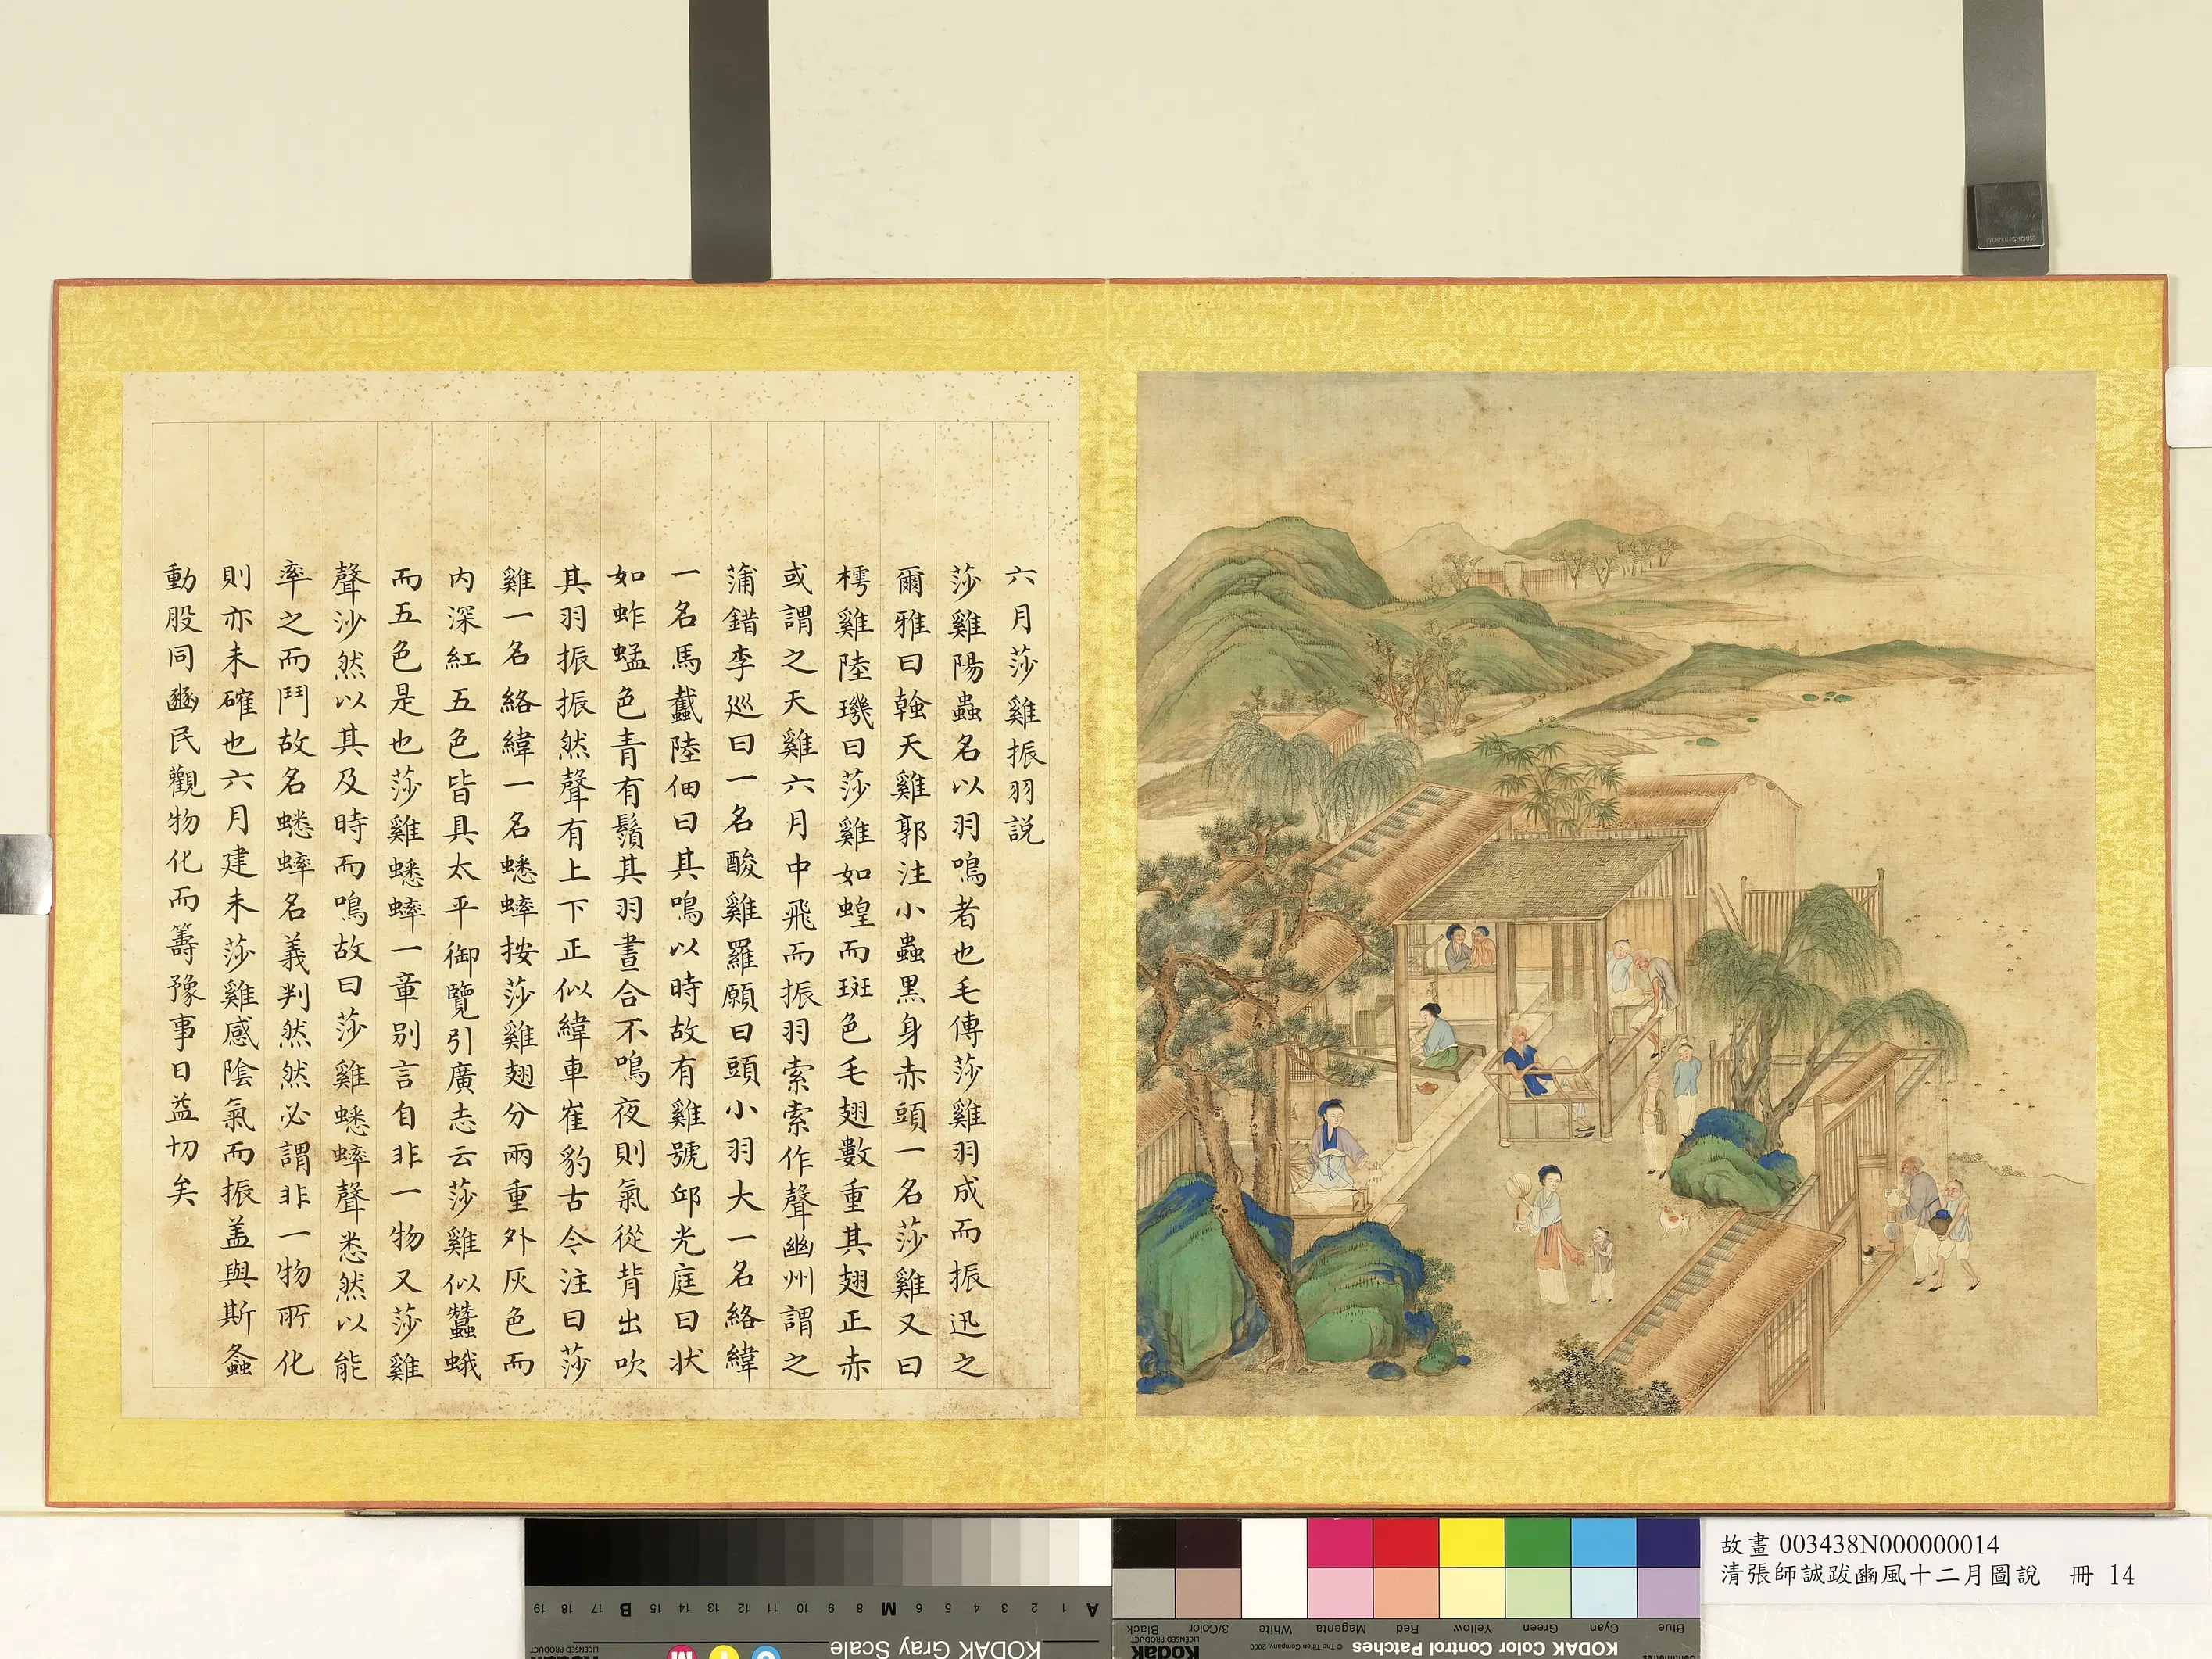 六月莎雞振羽説
莎雞陽蟲名以羽鳴者也毛傳莎雞羽成而振迅之
爾雅曰螒天雞郭注小蟲黒身赤頭一名莎雞又曰
樗雞陸璣曰莎雞如蝗而斑色毛翅數重其翅正赤
或謂之天雞六月中飛而振羽索索作聲幽州謂之
蒲錯李巡曰一名酸雞羅願曰頭小羽大一名絡緯
一名馬蠶陸佃曰其鳴以時故有雞號邱光庭曰狀
如蚱蜢色青有鬚其羽晝合不鳴夜則氣從背出吹
其羽振振然聲有上下正似緯車崔豹古今注曰莎
雞一名絡緯一名蟋蟀按莎雞翅分兩重外灰色而
内深紅五色皆具太平御覽引廣志云莎雞似蠶蛾
而五色是也莎雞蟋蟀一章别言自非一物又莎雞
聲沙然以其及時而鳴故曰莎雞蟋蟀聲悉然以能
率之而鬥故名蟋蟀名義判然然必謂非一物所化
則亦未確也六月建未莎雞感陰氣而振盖與斯螽
動股同豳民觀物化而籌豫事日益切矣
故畫 003438N000000014
清張師誠跋豳風十二月圖說 冊 14
KODAK Gray Scale
KODAK Color Control Patches
Blue Cyan Green Yellow Red Magenta White 3/Color Black
Kodak
LICENSED PRODUCT
© The Tiffen Company, 2000
A 1 2 3 4 5 6 M 8 9 10 11 12 13 14 15 B 17 18 19
C Y M